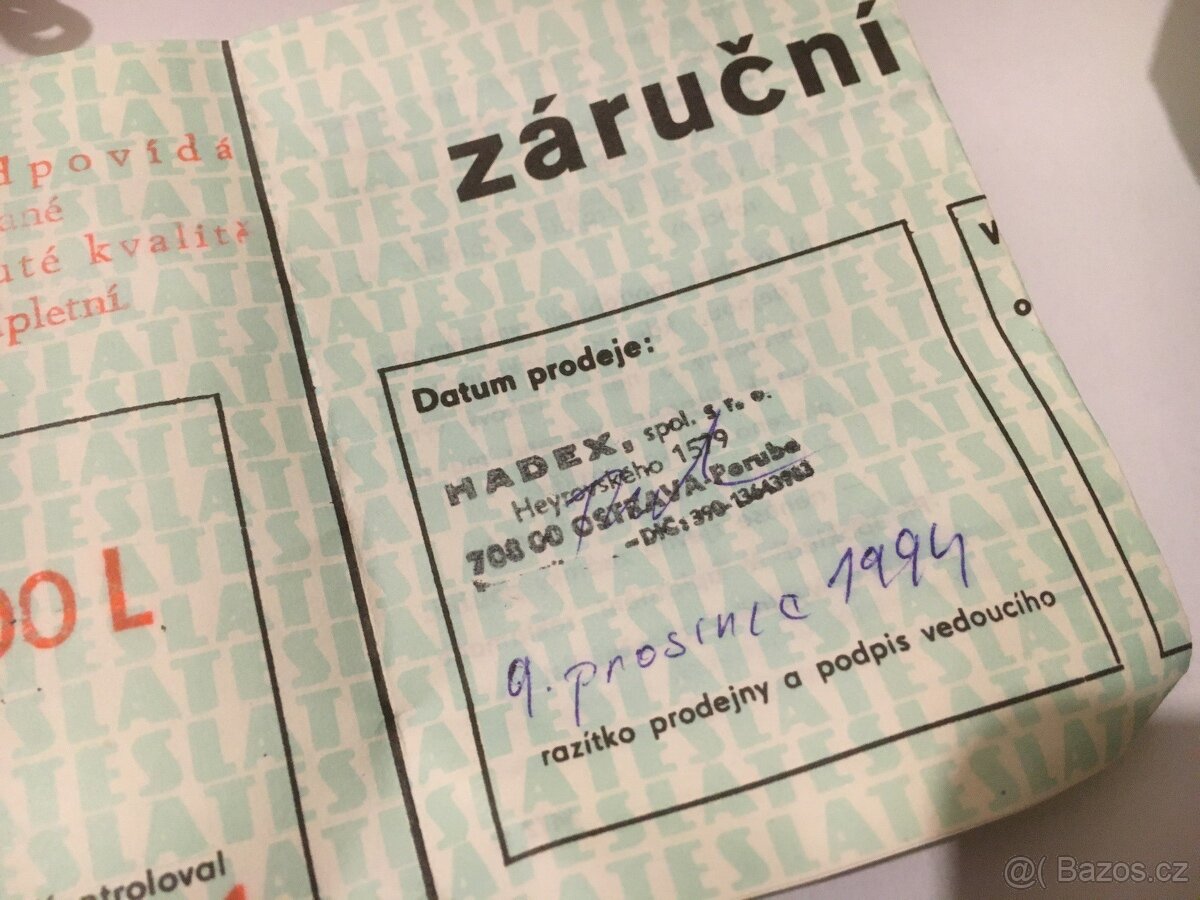 dpovídá
ané
uté kvalitě
pletní
00 L
ntroloval
záruční
Datum prodeje:
HADEX, spol. s r. o.
Heyrovského 1579
708 00 OSTRAVA-Poruba
-DIČ: 390-13643983
9. prosince 1994
razítko prodejny a podpis vedoucího
V
o
TESLA
@( Bazos.cz